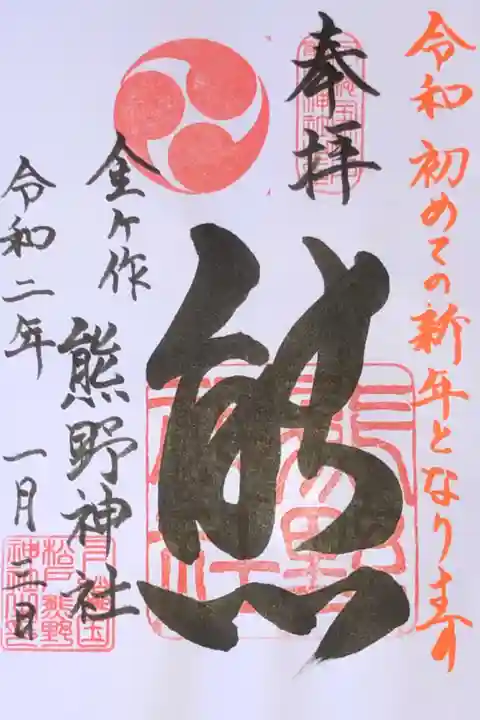 令和 初めての新年となります
奉拝
熊
金ヶ作
熊野神社
令和二年 一月 三日